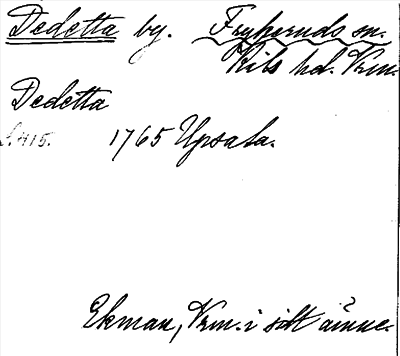 Dedetta by. Frykeruds sn.
Kils hd. Vrm.
Dedetta
L. 415. 1765 Upsala.
Ekman, Vrm. i sitt ämne.